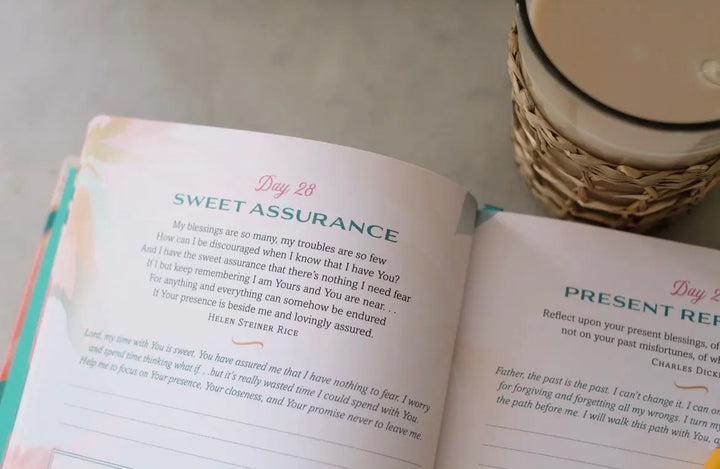 Day 28
SWEET ASSURANCE
My blessings are so many, my troubles are so few
How can I be discouraged when I know that I have You?
And I have the sweet assurance that there's nothing I need fear
If I but keep remembering I am Yours and You are near. . .
For anything and everything can somehow be endured
If Your presence is beside me and lovingly assured.
HELEN STEINER RICE
Lord, my time with You is sweet. You have assured me that I have nothing to fear. I worry
and spend time thinking what if . . but it's really wasted time I could spend with You.
Help me to focus on Your presence, Your closeness, and Your promise never to leave me.
Day 2
PRESENT REF
Reflect upon your present blessings, of
not on your past misfortunes, of w
CHARLES DICKE
Father, the past is the past. I can't change it. I can o
for forgiving and forgetting all my wrongs. I turn my
the path before me. I will walk this path with You, a